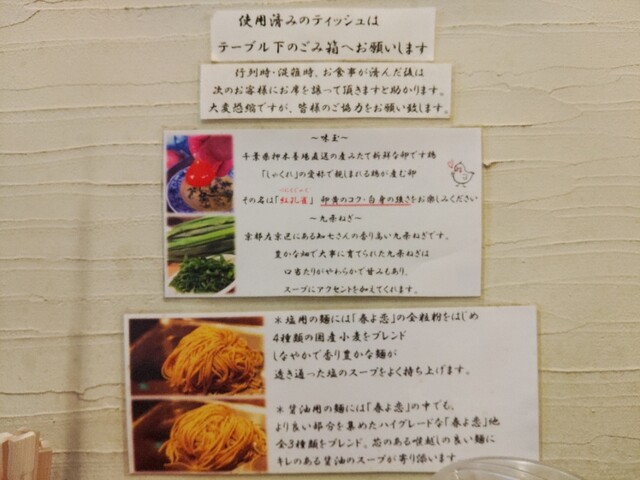 使用済みのティッシュは
テーブル下のごみ箱へお願いします
行列時・混雑時、お食事が済んだ後は
次のお客様にお席を譲って頂きますと助かります。
大変恐縮ですが、皆様のご協力をお願い致します。
～味玉～
千葉県 直送の産みたて新鮮な卵です鶏
「しゃくれ」の愛称で親しまれる鶏が産む卵
その名は「紅孔雀」 卵黄のコク・白身の強さをお楽しみください
～九条ねぎ～
京都左京区にある さんの香り高い九条ねぎです。
豊かな畑で大事に育てられた九条ねぎは
口当たりがやわらかで甘みもあり、
スープにアクセントを加えてくれます。
※塩用の麺には「春よ恋」の全粒粉をはじめ
4種類の国産小麦をブレンド
しなやかで香り豊かな麺が
透き通った塩のスープをよく持ち上げます。
※醤油用の麺には「春よ恋」の中でも、
より良い部分を集めたハイグレードな「春よ恋」他
全3種類をブレンド。芯のある喉越しの良い麺に
キレのある醤油のスープが寄り添います